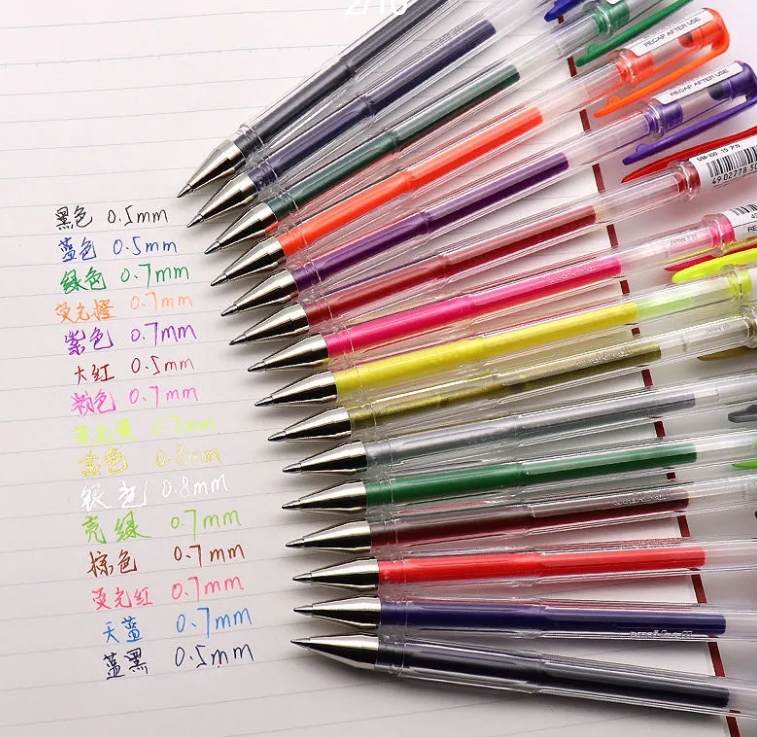 2/10
RECAP AFTER USE
RECAP AFTER USE
UM-100
4 902778 50
黑色 0.5mm
蓝色 0.5mm
绿色 0.7mm
荧光橙 0.7mm
紫色 0.7mm
大红 0.5mm
粉色 0.7mm
荧光黄 0.7mm
金色 0.8mm
银色 0.8mm
亮绿 0.7mm
棕色 0.7mm
荧光红 0.7mm
天蓝 0.7mm
蓝黑 0.5mm